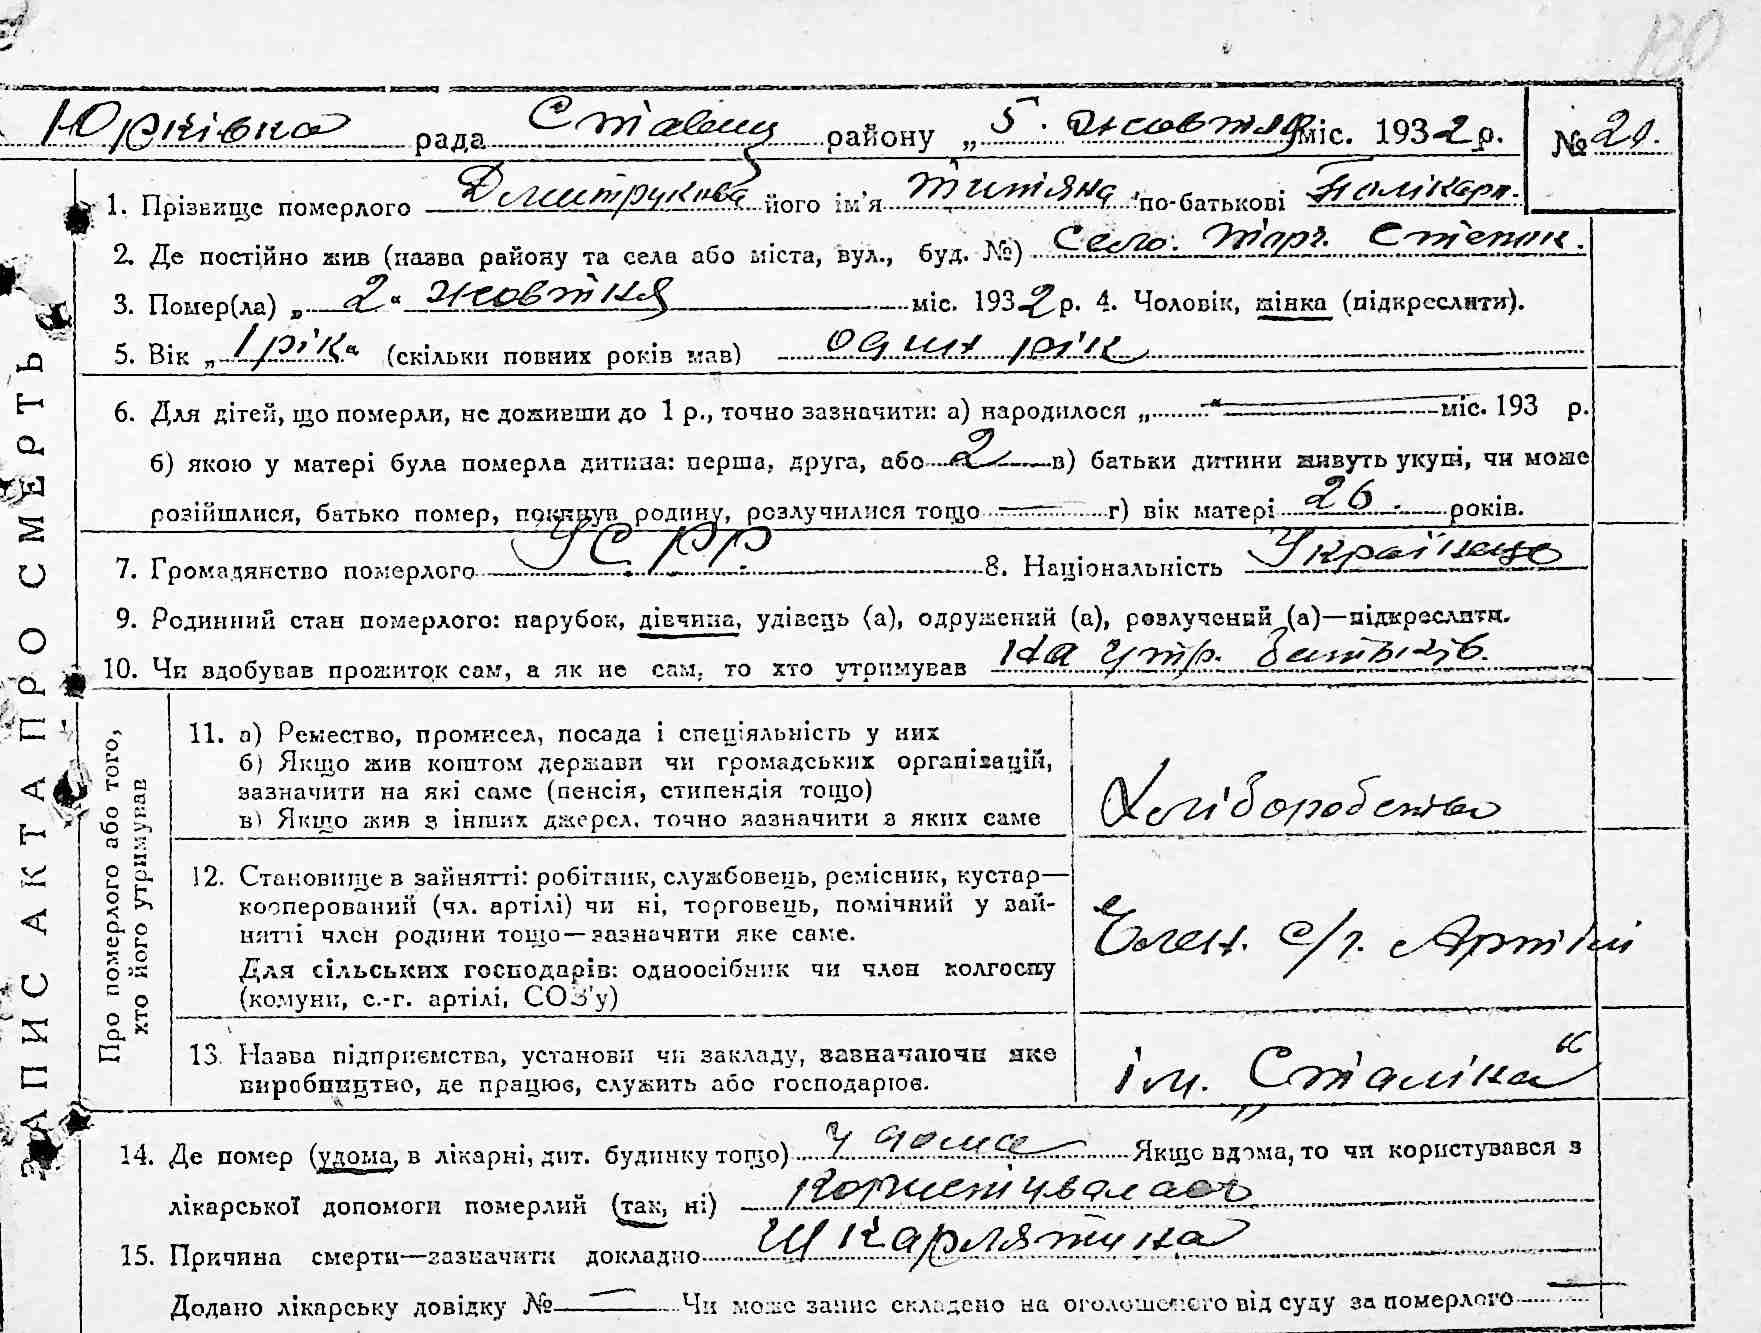 130
Юрківка рада Ставищ району „5. жовтня міс. 1932 р. № 20.
1. Прізвище померлого Дмитрукова його ім'я Титяна по-батькові Полікарп.
2. Де постійно жив (назва району та села або міста, вул., буд. №) Село. Тарг. Степок.
3. Помер(ла) „2“ жовтня міс. 1932 р. 4. Чоловік, жінка (підкреслити).
5. Вік „1 рік“ (скільки повних років мав) один рік
6. Для дітей, що померли, не доживши до 1 р., точно зазначити: а) народилося „ “ міс. 193 р.
б) якою у матері була померла дитина: перша, друга, або 2 в) батьки дитини живуть укупі, чи може
розійшлися, батько помер, покинув родину, розлучилися тощо г) вік матері 26 років.
7. Громадянство померлого УСРР 8. Національність Українець
9. Родинний стан померлого: парубок, дівчина, удівець (а), одружений (а), розлучений (а)—підкреслити.
10. Чи вдобував прожиток сам, а як не сам, то хто утримував На утр. батьків.
ЗАПИС АКТА ПРО СМЕРТЬ
Про померлого або того,
хто його утримував
11. а) Ремество, промисел, посада і спеціяльність у них
б) Якщо жив коштом держави чи громадських організацій,
зазначити на які саме (пенсія, стипендія тощо)
в) Якщо жив з інших джерел, точно зазначити з яких саме
Хліборобство
12. Становище в зайнятті: робітник, службовець, ремісник, кустар—
кооперований (чл. артілі) чи ні, торговець, помічний у зай-
нятті член родини тощо—зазначити яке саме.
Для сільських господарів: одноосібник чи член колгоспу
(комуни, с.-г. артілі, СОЗ'у)
Член. с/г. Артілі
13. Назва підприємства, установи чи закладу, зазначаючи яке
виробництво, де працює, служить або господарює.
ім. „Сталіна“
14. Де помер (удома, в лікарні, дит. будинку тощо) у дома Якщо вдома, то чи користувався з
лікарської допомоги померлий (так, ні) користувалась
15. Причина смерти—зазначити докладно Шкарлятина
Додано лікарську довідку № Чи може запис складено на оголошеного від суду за померлого